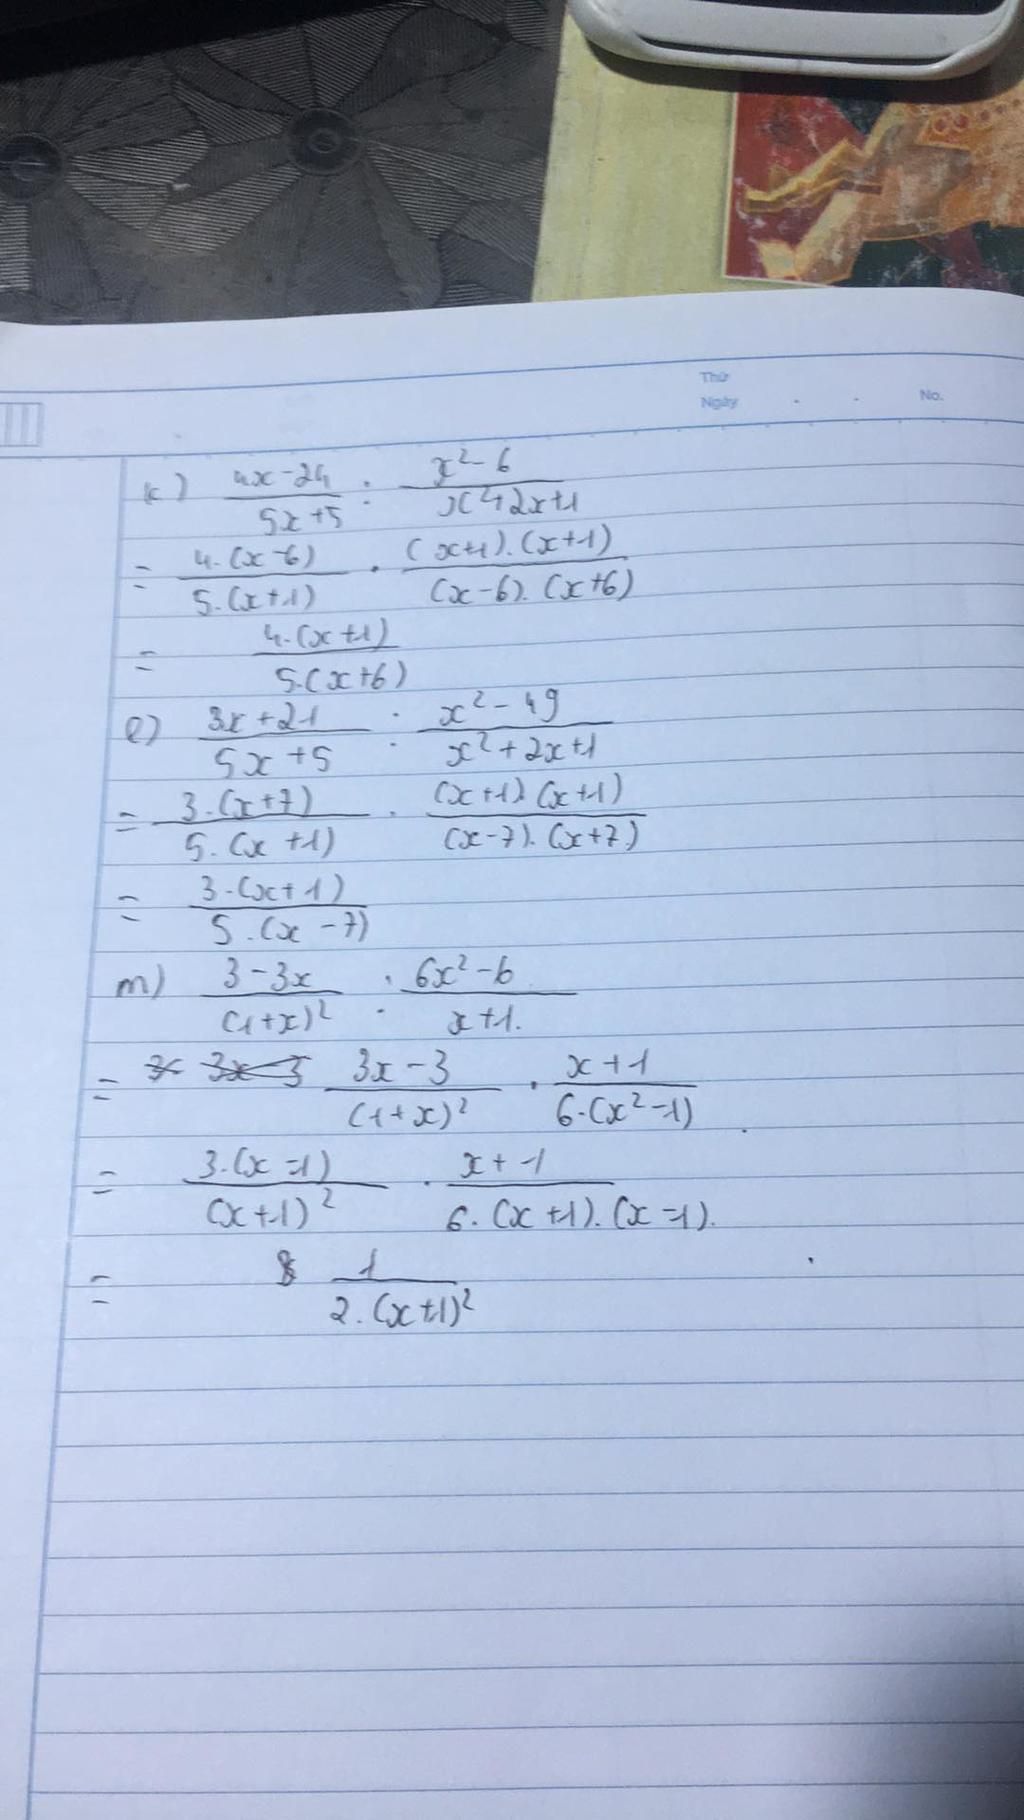 Thứ
Ngày . . No.
k) \frac{4x-24}{5x+5} : \frac{x^2-6}{x^2+2x+1}
= \frac{4.(x-6)}{5.(x+1)} . \frac{(x+1).(x+1)}{(x-6).(x+6)}
= \frac{4.(x+1)}{5.(x+6)}
l) \frac{3x+21}{5x+5} : \frac{x^2-49}{x^2+2x+1}
= \frac{3.(x+7)}{5.(x+1)} . \frac{(x+1).(x+1)}{(x-7).(x+7)}
= \frac{3.(x+1)}{5.(x-7)}
m) \frac{3-3x}{(1+x)^2} : \frac{6x^2-6}{x+1.}
= \frac{3x-3}{(1+x)^2} . \frac{x+1}{6.(x^2-1)}
= \frac{3.(x-1)}{(x+1)^2} . \frac{x+1}{6.(x+1).(x-1).}
= \frac{1}{2.(x+1)^2}